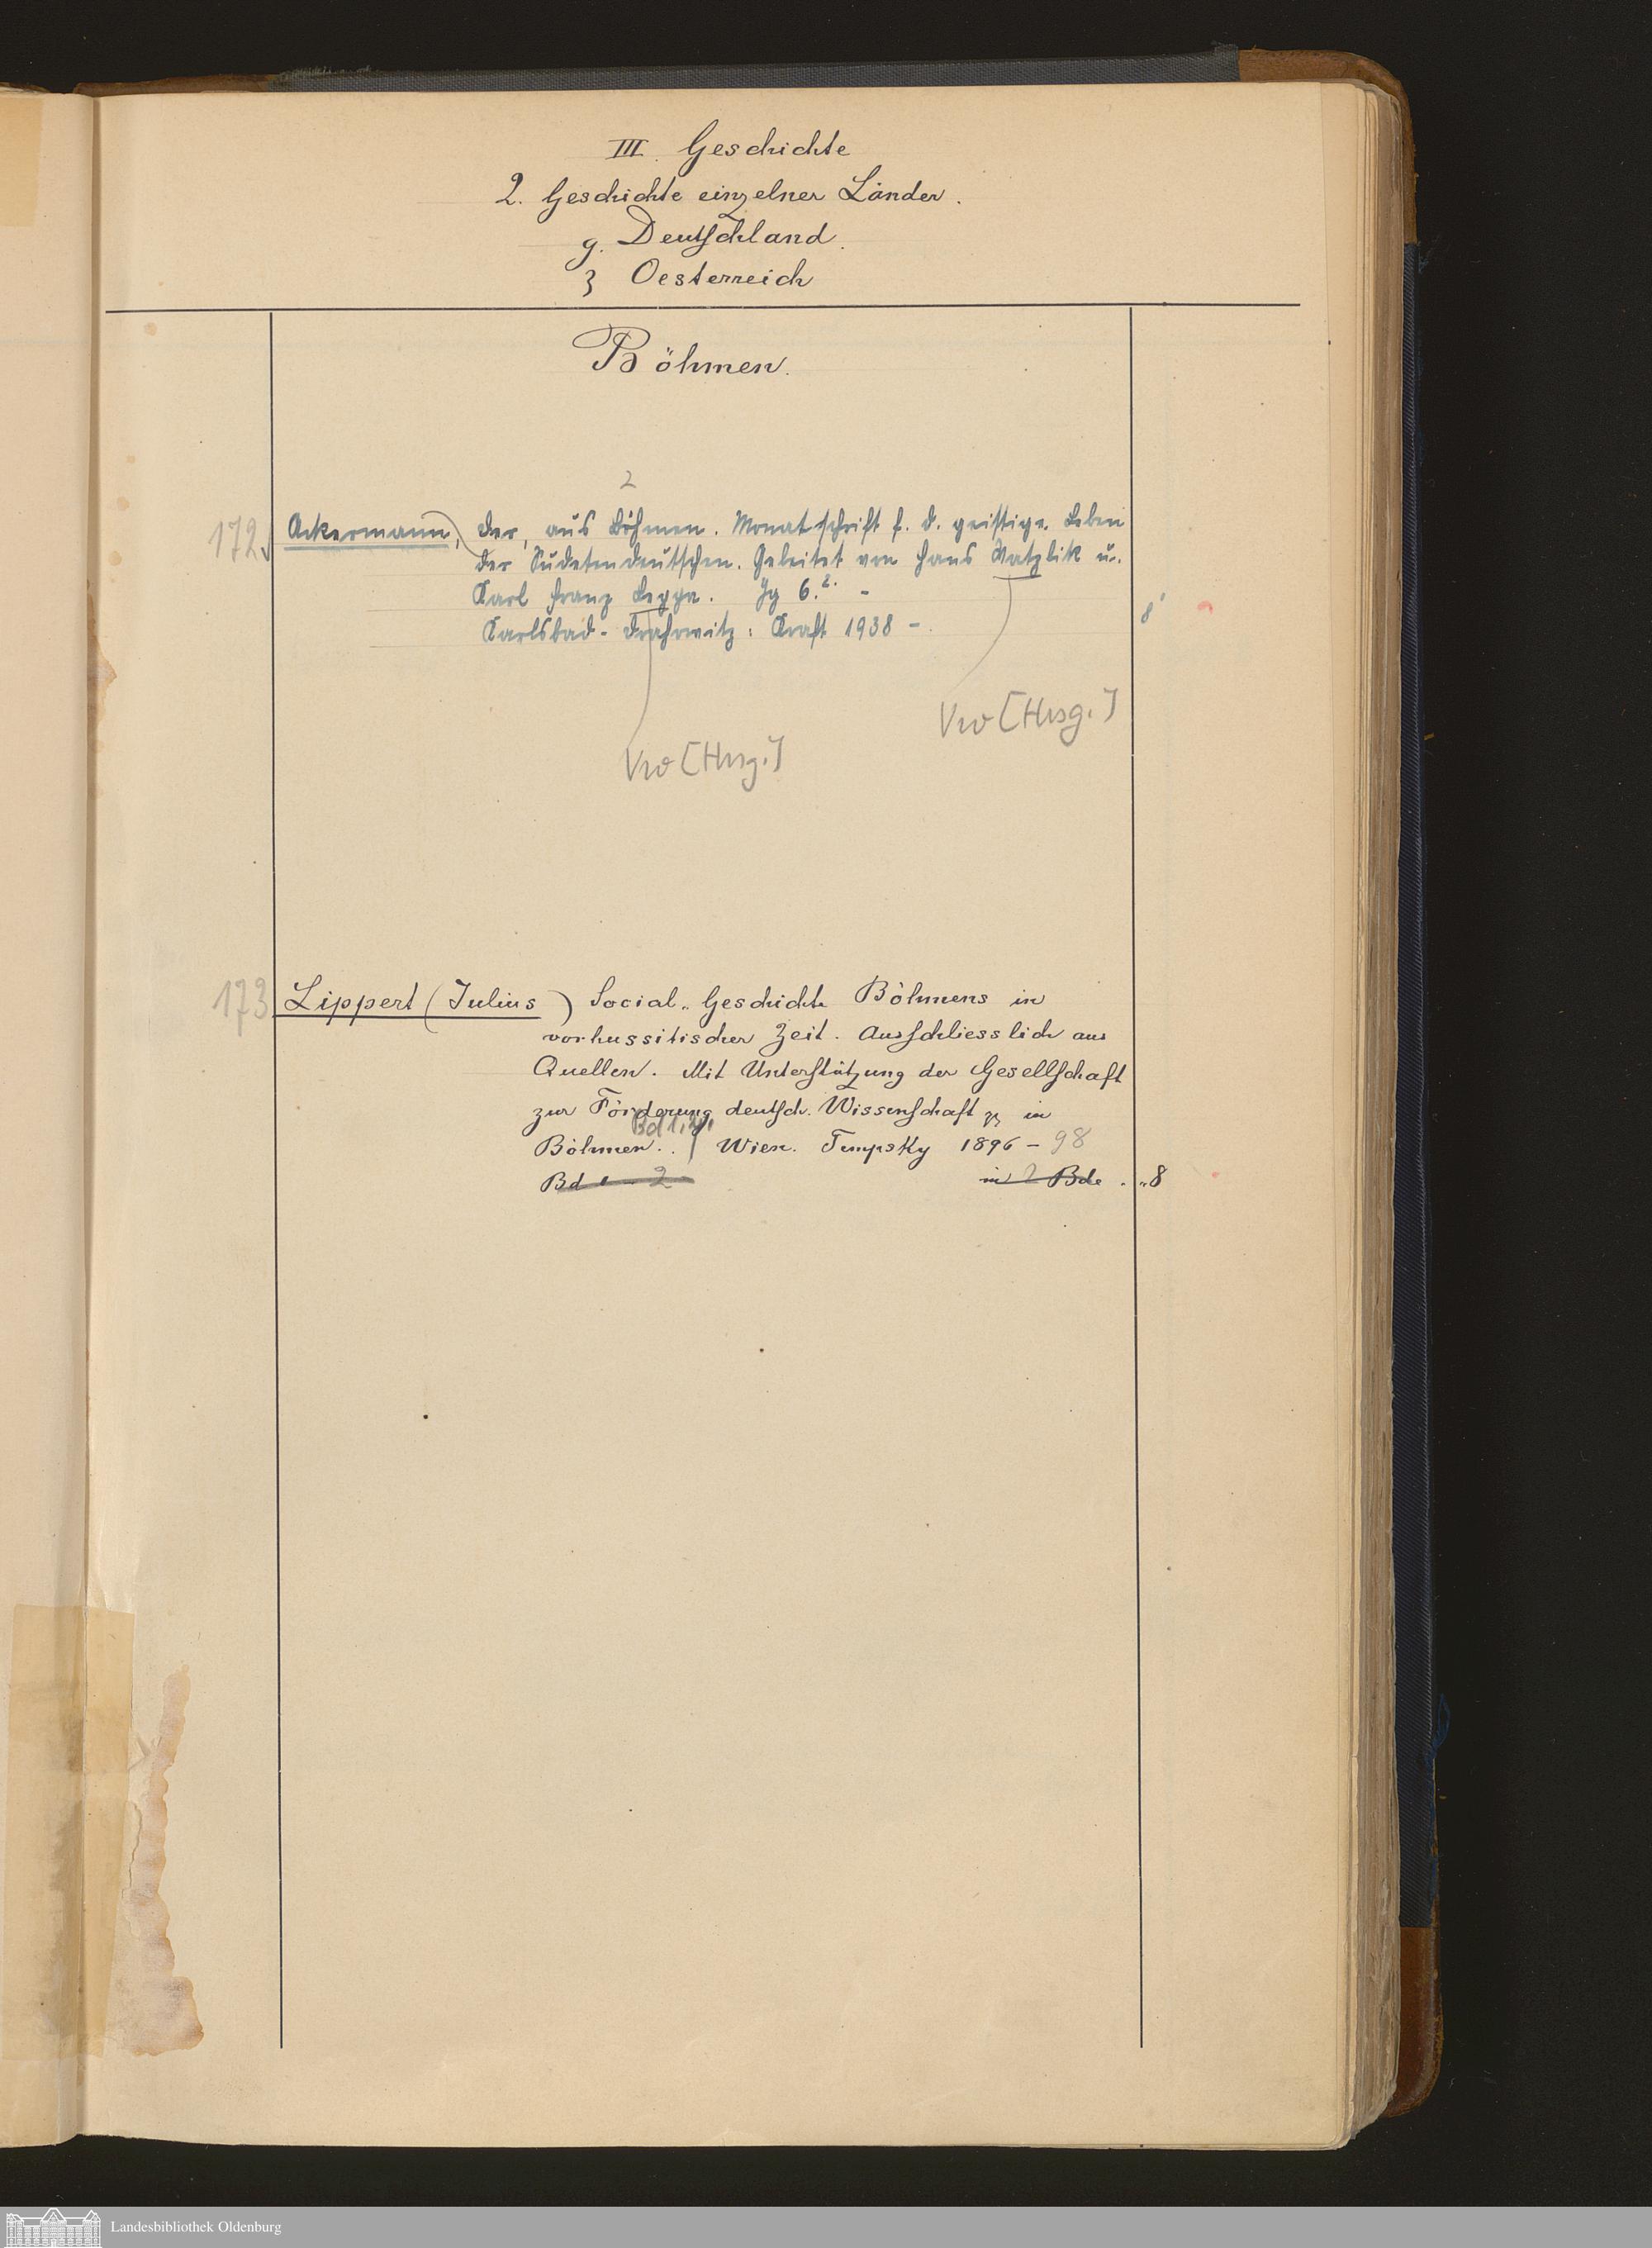 III. Geschichte
2. Geschichte einzelner Länder.
g. Deutschland.
ʒ Oesterreich
Böhmen.
2
172 Ackermann, Der, aus Böhmen. Monatschrift f. d. geistige Leben
der Sudetendeutschen. Geleitet von Hans Watzlik u.
Karl Franz Leppa. Jg 6.2. -
Karlsbad-Drahowitz: Kraft 1938 -. 8'
Vw [Hrsg.]
Vw [Hrsg.]
173 Lippert (Julius) Social-Geschichte Böhmens in
vorhussitischer Zeit. Ausschliesslich aus
Quellen. Mit Unterstützung der Gesellschaft
zur Förderung deutsch. Wissenschaft in
Bd 1.2.
Böhmen.. Wien. Tempsky 1896 - 98
Bd 1 - 2 in 2 Bde. 8
Landesbibliothek Oldenburg